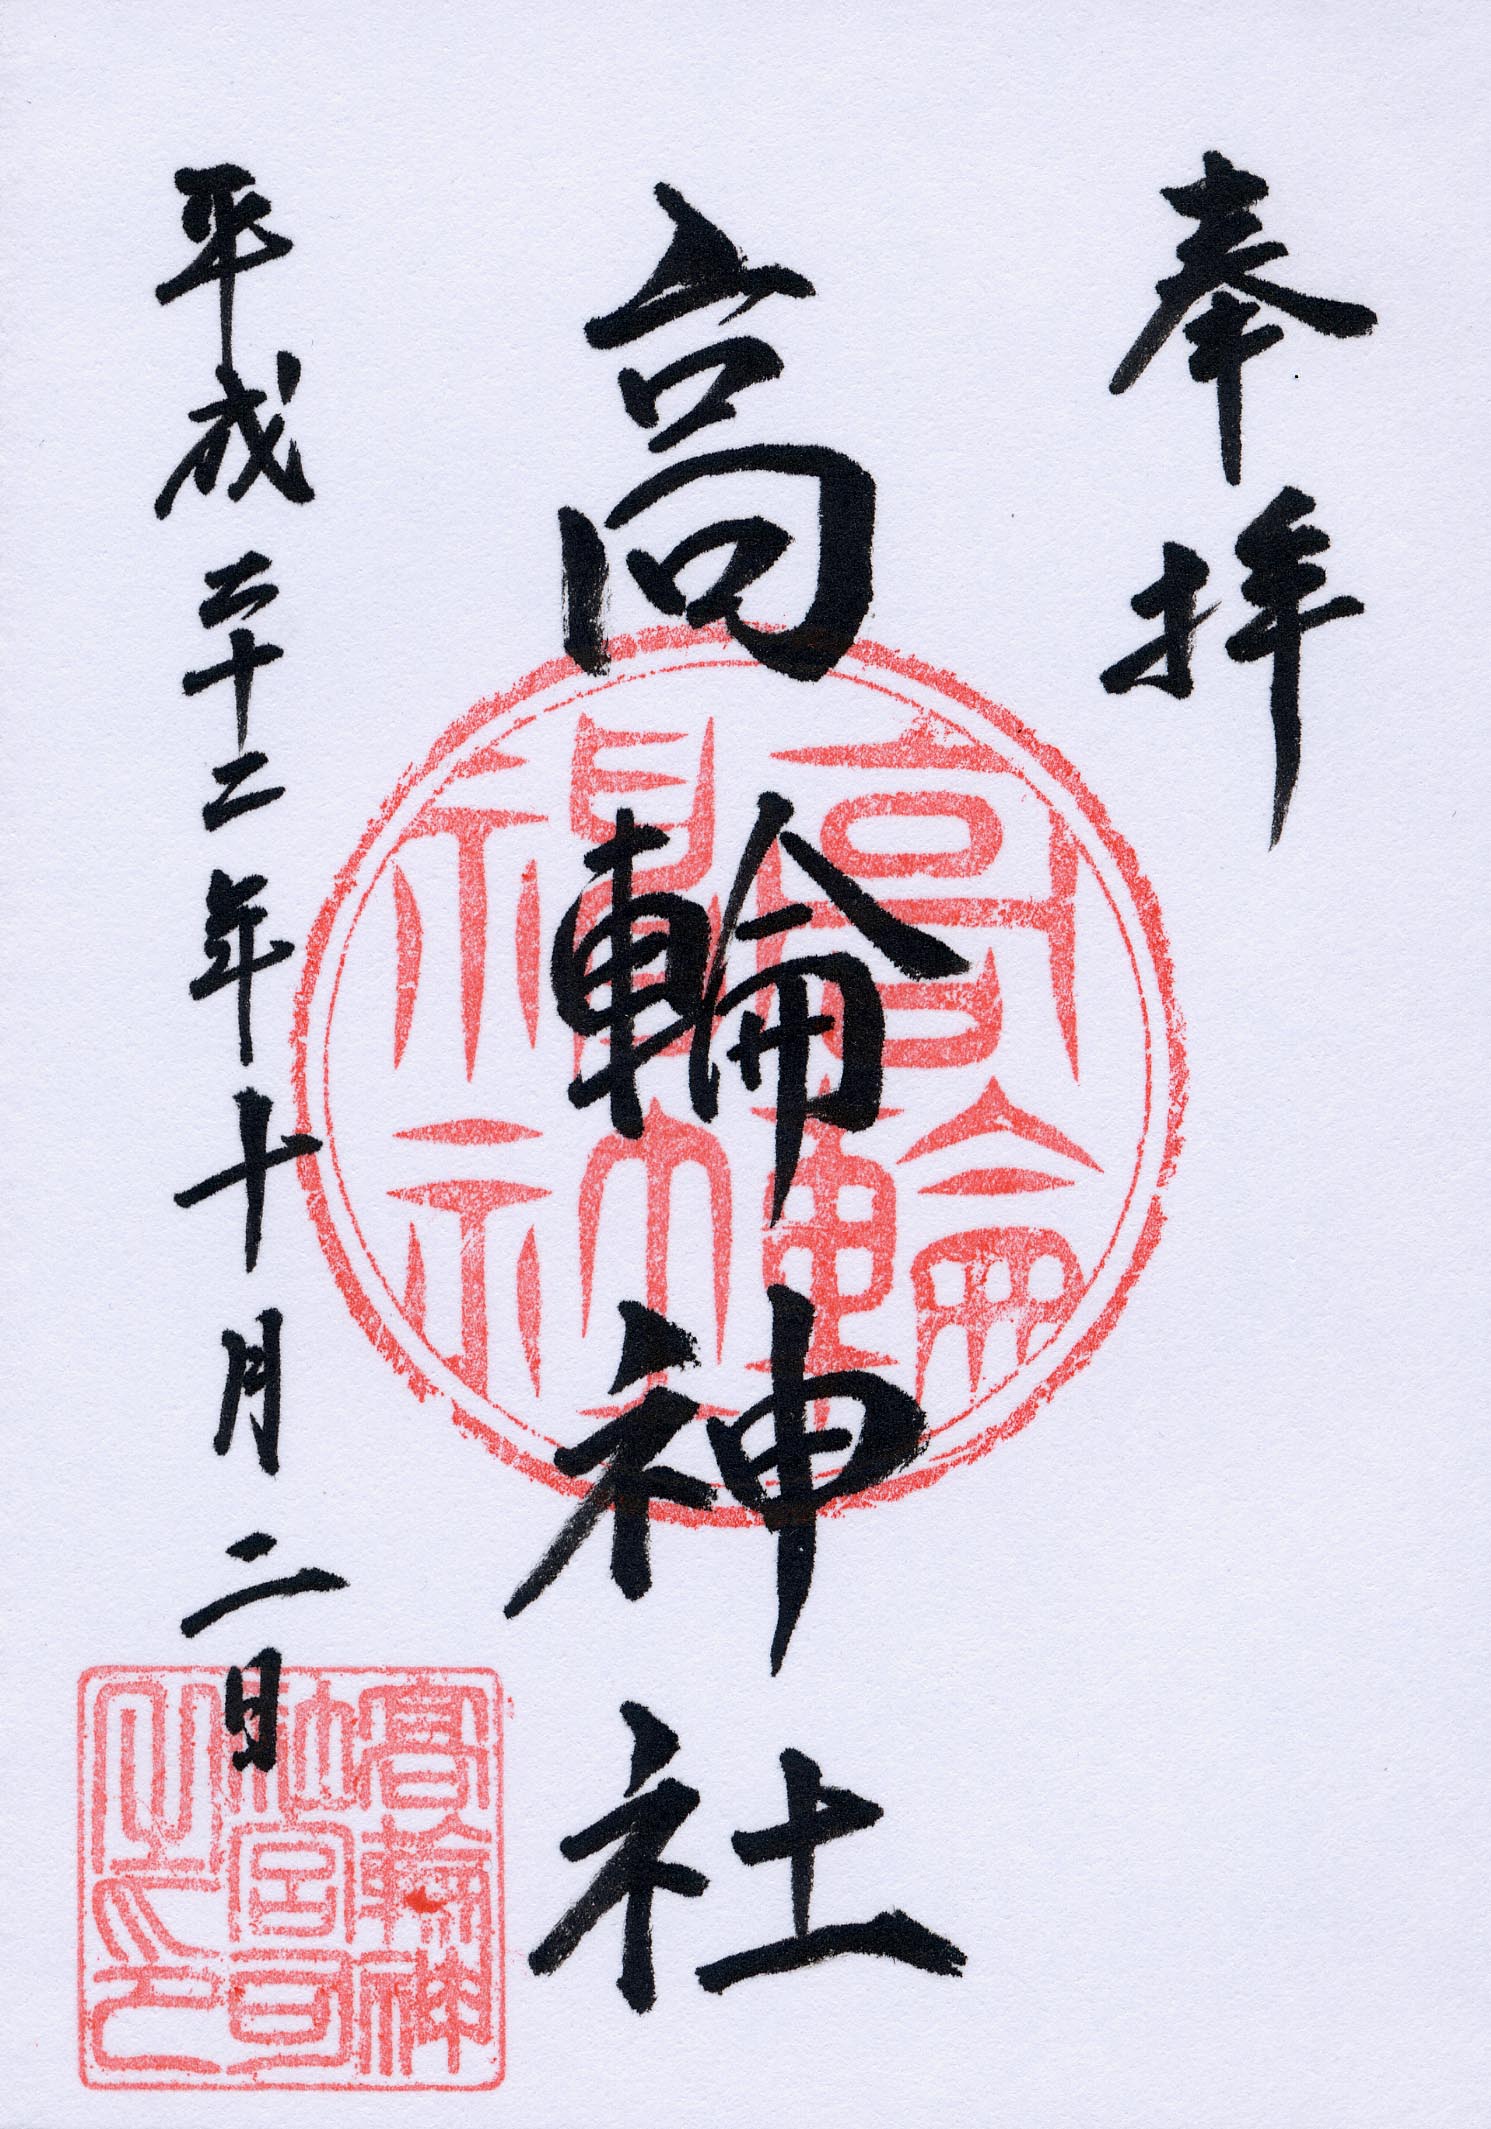 奉拝
高輪神社
平成二十二年十月二日
高輪神社
高輪神社宮司之印